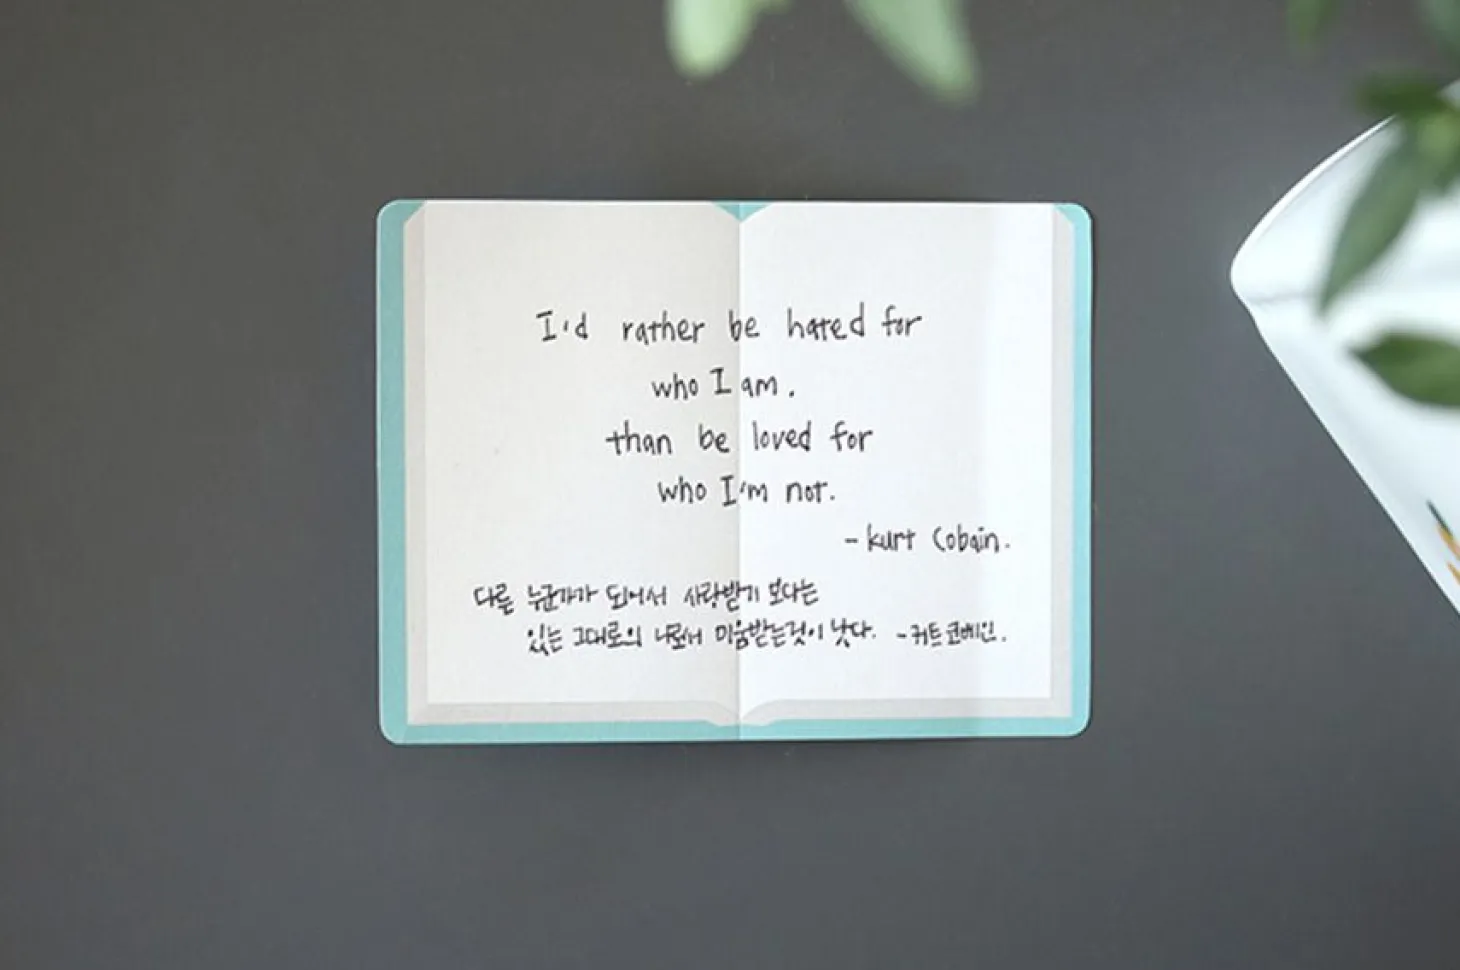 I'd rather be hated for
who I am.
than be loved for
who I'm not.
- kurt Cobain.
다른 누군가가 되어서 사랑받기 보다는
있는 그대로의 나로서 미움받는것이 낫다. - 커트 코베인.